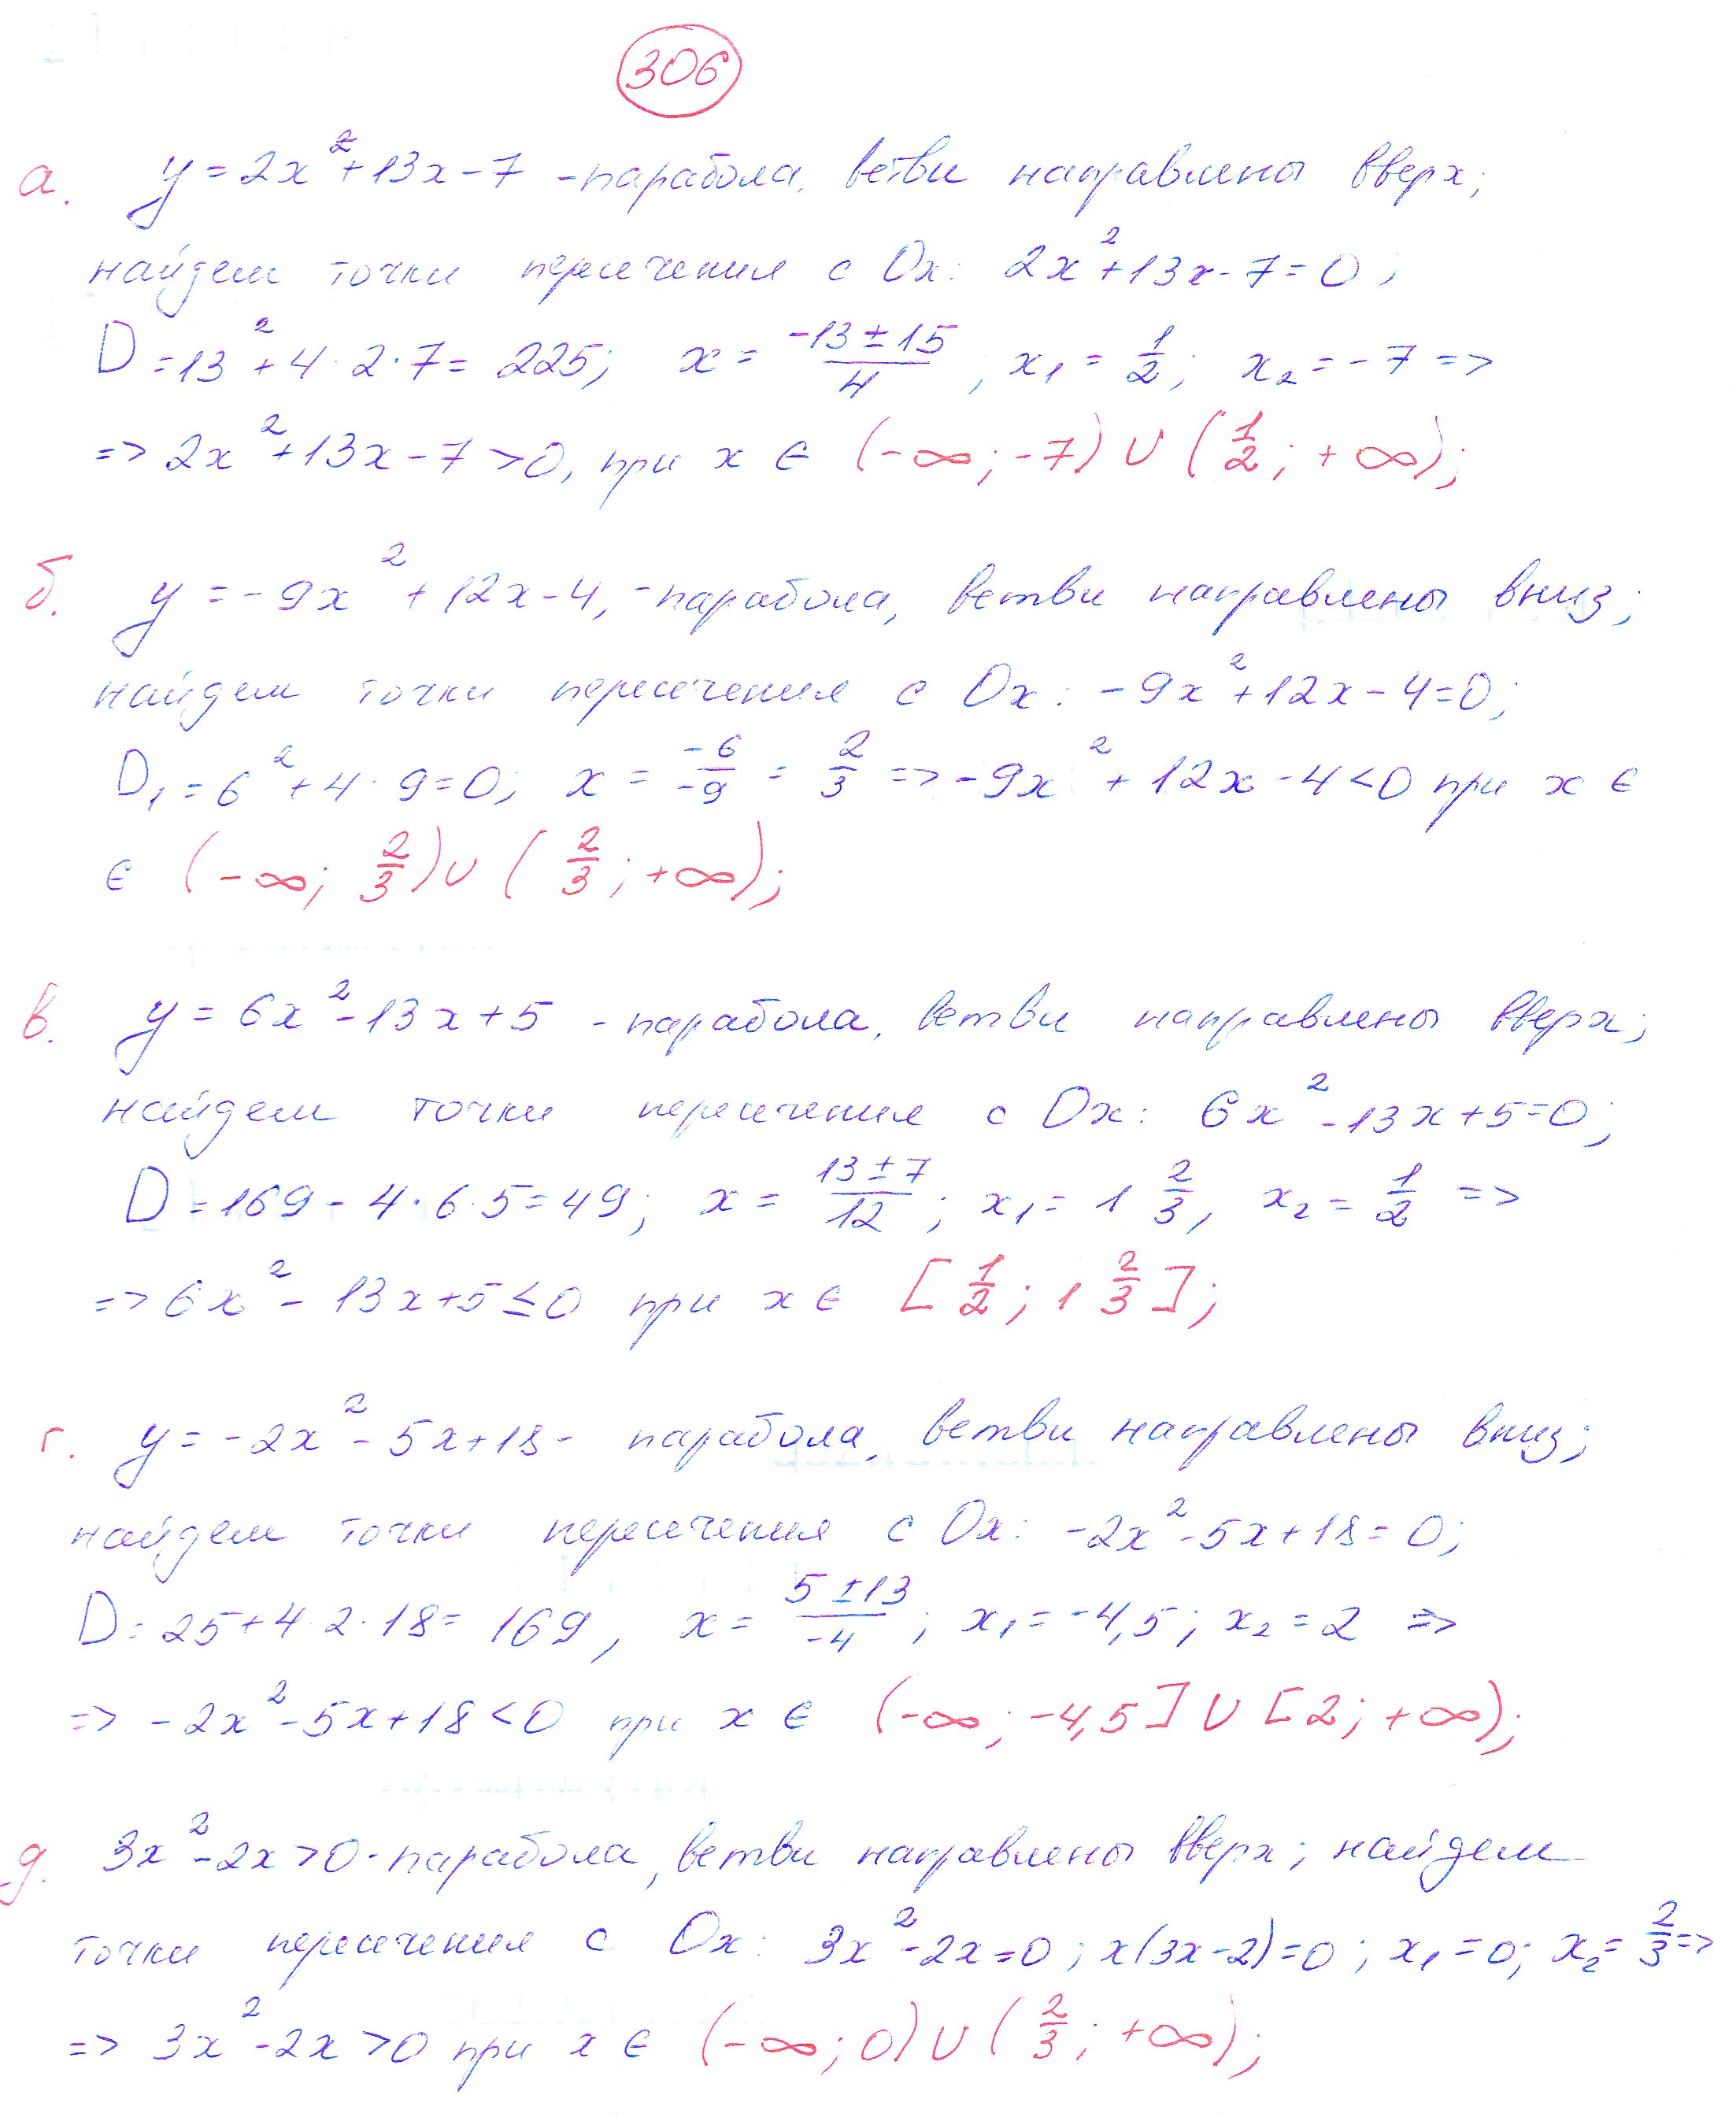 306
а. y = 2x² + 13x - 7 - парабола, ветви направлены вверх;
найдем точки пересечения с Ox: 2x² + 13x - 7 = 0;
D = 13² + 4 · 2 · 7 = 225; x = (-13 ± 15)/4; x₁ = 1/2; x₂ = -7 =>
=> 2x² + 13x - 7 > 0, при x ∈ (-∞; -7) ∪ (1/2; +∞);
б. y = -9x² + 12x - 4, - парабола, ветви направлены вниз;
найдем точки пересечения с Ox: -9x² + 12x - 4 = 0;
D₁ = 6² + 4 · 9 = 0; x = -6/-9 = 2/3 => -9x² + 12x - 4 < 0 при x ∈
∈ (-∞; 2/3) ∪ (2/3; +∞);
в. y = 6x² - 13x + 5 - парабола, ветви направлены вверх;
найдем точки пересечения с Ox: 6x² - 13x + 5 = 0;
D = 169 - 4 · 6 · 5 = 49; x = (13 ± 7)/12; x₁ = 1 2/3, x₂ = 1/2 =>
=> 6x² - 13x + 5 ≤ 0 при x ∈ [1/2; 1 2/3];
г. y = -2x² - 5x + 18 - парабола, ветви направлены вниз;
найдем точки пересечения с Ox: -2x² - 5x + 18 = 0;
D = 25 + 4 · 2 · 18 = 169, x = (5 ± 13)/-4; x₁ = -4,5; x₂ = 2 =>
=> -2x² - 5x + 18 < 0 при x ∈ (-∞; -4,5] ∪ [2; +∞);
д. 3x² - 2x > 0 - парабола, ветви направлены вверх; найдем
точки пересечения с Ox: 3x² - 2x = 0; x(3x - 2) = 0; x₁ = 0; x₂ = 2/3 =>
=> 3x² - 2x > 0 при x ∈ (-∞; 0) ∪ (2/3; +∞);